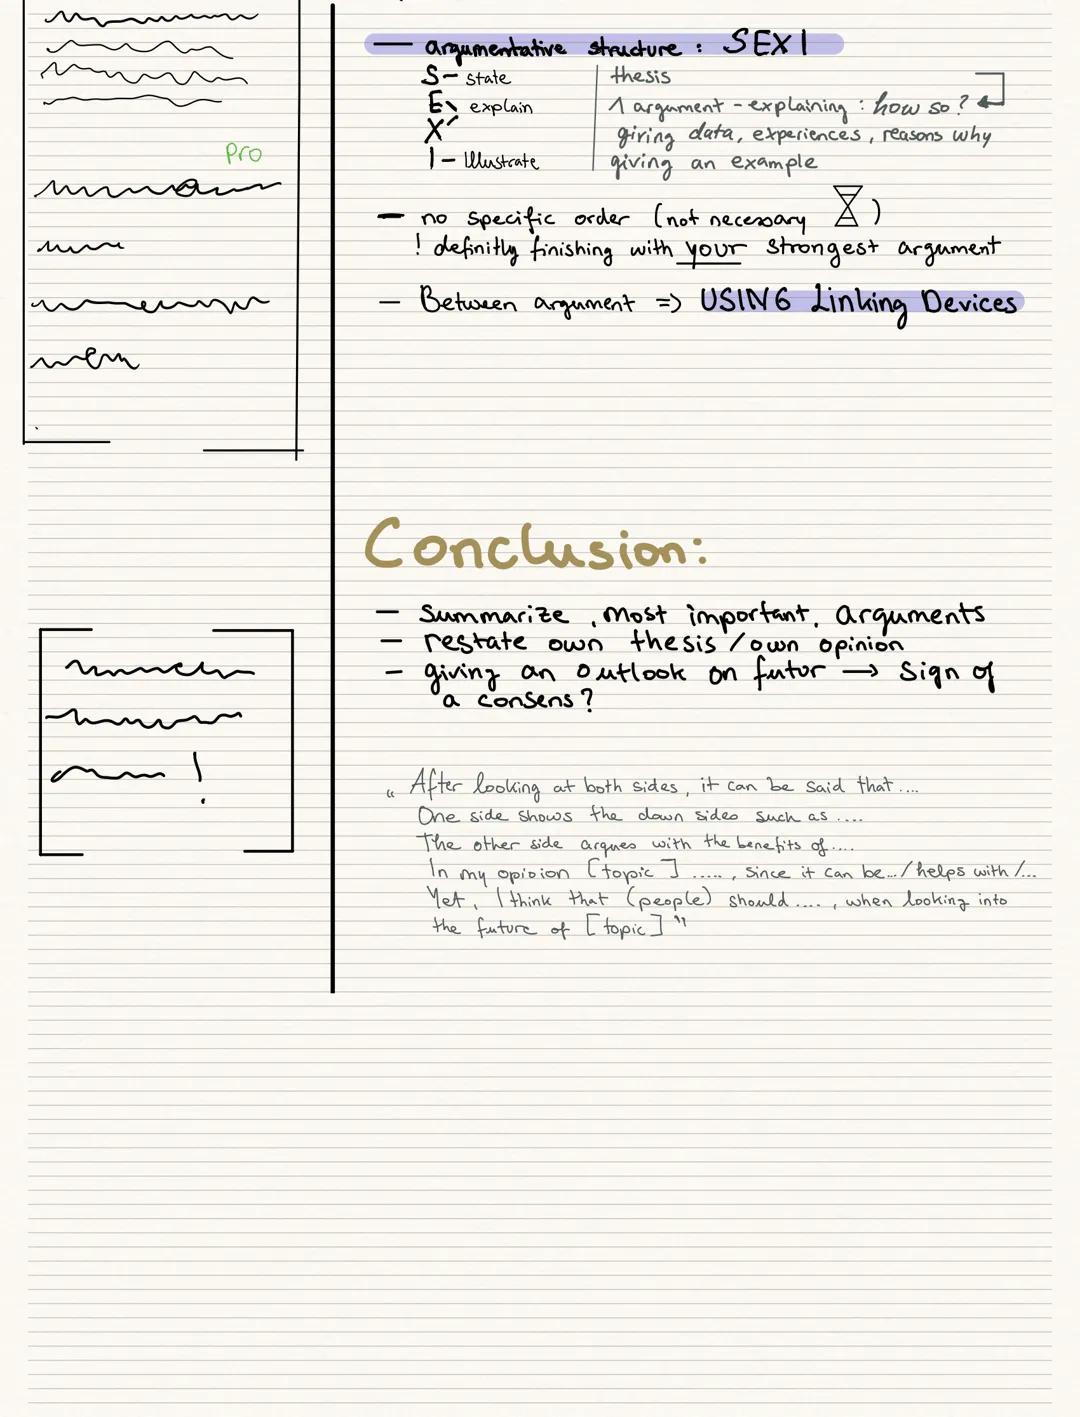 Pro
— argumentative structure : SEXI
S – state thesis
E explain 1 argument – explaining : how so?
X giving data, experiences, reasons why
I – Illustrate giving an example
— no specific order (not necessary )
! definitly finishing with your strongest argument
— Between argument => USING Linking Devices
Conclusion:
— Summarize, most important, arguments
— restate own thesis / own opinion
— giving an outlook on futur → Sign of
a consens?
„ After looking at both sides, it can be said that ....
One side shows the down sides such as ....
The other side argues with the benefits of ....
In my opinion [topic] ....., since it can be... / helps with /...
Yet, I think that (people) should ...., when looking into
the future of [topic] "